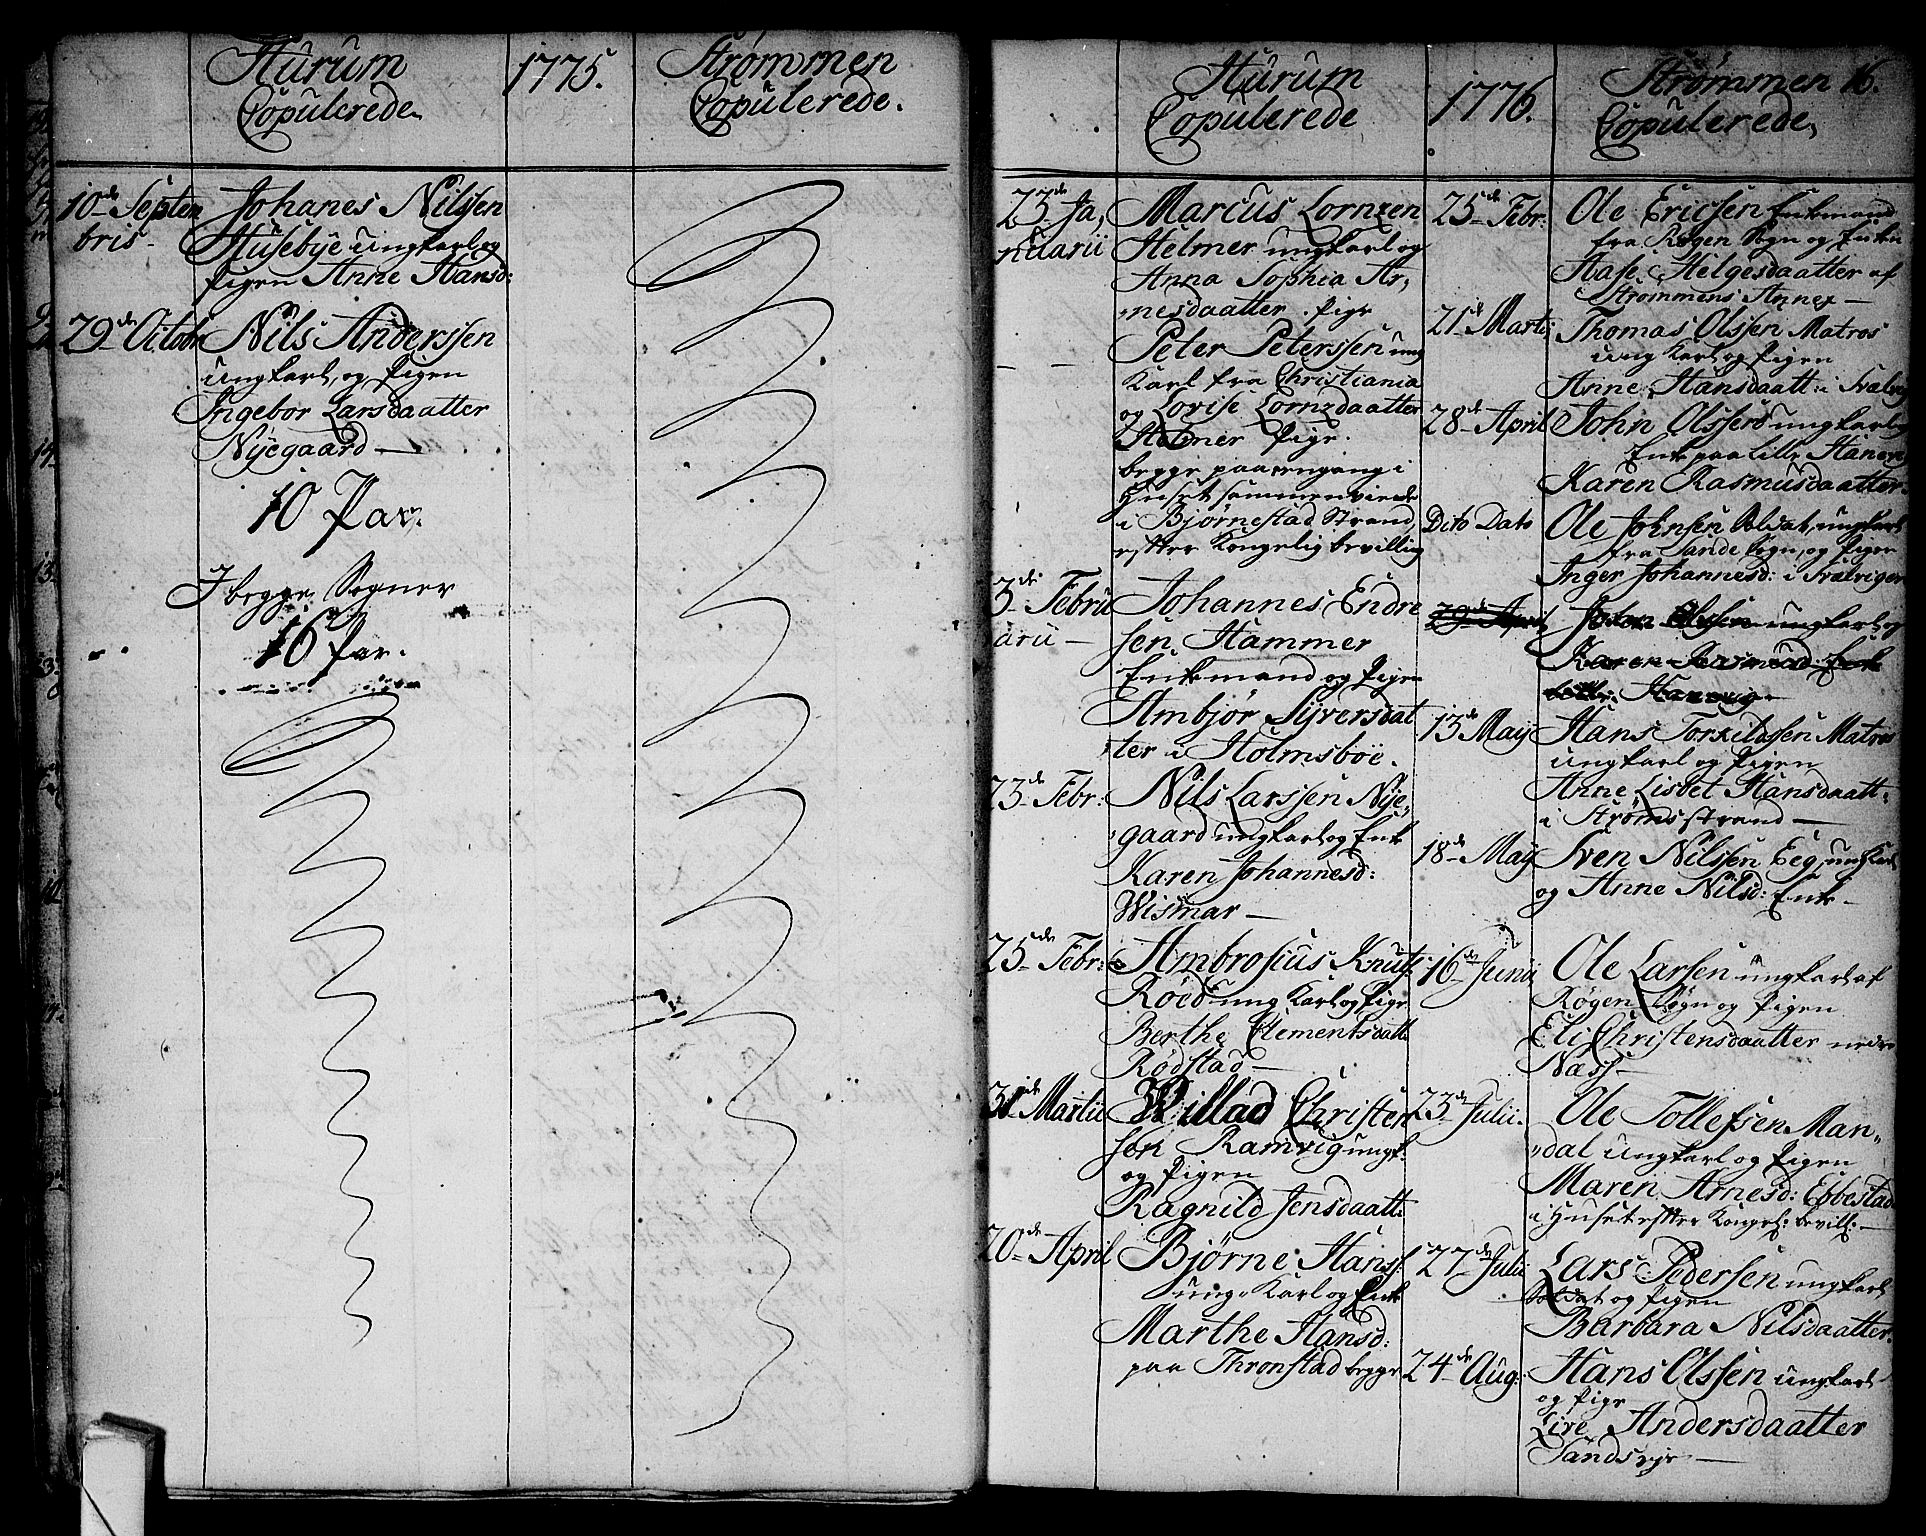 Hurum
Copulerede
1775.
Strømmen
Copulerede.
10de Septem
bris
Johanes Nilssen
Husebye ungkarl og
Pigen Anne Hansd:
29de Octobr
Nils Anderssen
ungkarl, og Pigen
Ingebor Larsdaatter
Nyegaard
10 Par.
I begge Sogner
16 Par.
Hurum
Copulerede
1776.
Strømmen
Copulerede
16.
23de Ja,
nuarii
Marcus Lornzen
Helmer ungkarl og
Anna Sophia Ar,
nesdaatter Pige
Peter Peterssen ung
Karl fra Christiania
og Lovise Lornzdaatter
Helmer Pige.
begge paa engang i
Huset sammenviede
i Bjørnestad Strand
efter Kongelig bevilling
3de Febru
arii
Johannes Endre
sen Hammer
Enkemand og Pigen
Ambjør Syversdat
ter i Holmsboe.
23de Febr:
Nils Larssen Nye,
gaard ungkarl og Enke
Karen Johannesd:
Wismar
25de Febr:
Ambrosius Knuts
Røed ung Karl og Pige
Berthe Clementsdatt
Rødstad
31de Martii
Willad Christen
sen Ramvig ungk.
og Pigen
Ragnild Jensdaatt:
20de April
Bjørne Hanss.
ung Karl og Enke
Marthe Hansd:
paa Thronstad begge
25de Febr:
Ole Ericsen Enkemand
fra Røgen Sogn og Enken
Aase Helgesdaatter af
Strømmens Annex
21de Martii
Thomas Olssen Matros
ung Karl og Pigen
Anne Hansdaatt: i
28de April
John Olssen ungkarl og
Enke paa Lille
Karen Rasmusdaatter.
Dito Dato
Ole Johnsen Soldat, ungkarl
fra Sande Sogn, og Pige
Inger Johannesd: i
29de April
John Olssen ungkarl og
Karen Rasmusd: Enke
13de May
Hans Torkildssen Matros
ungkarl og Pigen
Anne Lisbet Hansdaatt:
i Strømsstrand
18de May
Sven Nilssen Eeg, ungkarl
og Anne Nilsd: Enke
16de Junii
Ole Larsen ungkarl af
Røgen Sogn og Pigen
Eli Christensdaatter nedre
Næss
23de Julii.
Ole Tollefsen Man,,
,,dal ungkarl og Pigen
Maren Arnesd: Ebbestad
i Huset efter Kongel: bevill:
27de Julii
Lars Pedersen ungkarl
Soldat og Pigen
Barbara Nilsdaatter.
24de Aug:
Hans Olssen ungkarl
og Pige
Live Andersdaatter